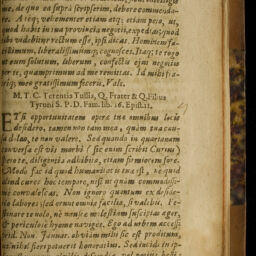 me, de quo ea suprà scripserim, debere commoda-
re. Atq; vehementer etiam atq; etiam peto, ut,
quod habit in tua provincia negotii, expedias; quod
tibi videbitur rectum esse, ipsi dicas. Hominem fa-
cillimum, liberalissimumq; cognosces. Itaq; te rogo
ut eum solutum, liberum, confectis ejus negotiis
per te, quamprimum ad me remittas. Id mihi fra-
triq; meo gratissimum feceris. Vale.
M. T. C. Terentia Tullia, Q. Frater & Q. Filius
Tyroni S. P. D. Fam. lib. 16. Epist. 11.
ETsi opportunitatem operæ tuæ omnibus locis
desidero, tamen non tam mea, quàm tua causâ
doleo, te non valere. Sed quando in quartanam
conversa est vis morbi (sic enim scribit Curius)
spero te, diligentiâ adhibitâ, etiam firmiorem fore.
Modo fac id quod humanitatis tuæ est, ne quid
aliud cures hoc tempore, nisi ut quàm commodissi-
mè convalescas. Non ignoro quantum ex deside-
rio labores: sed erunt omnia facilia, si valebis. Fe-
stinare te nolo, ne nauseæ molestiam suscipias æger,
& periculosè hyeme naviges. Ego ad urbem accessi
prid. Non. Januar. obviam mihi sic est proditum,
ut nihil fieri potuerit honoratius. Sed incidi in ip-